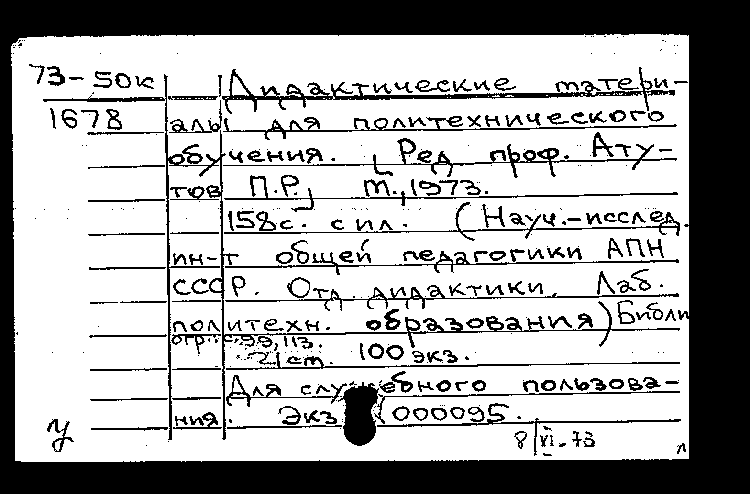 73-50к Дидактические матери-
1678 алы для политехнического
обучения. [Ред проф. Ату-
тов П.Р.] М., 1973.
158с. с ил. (Науч.-исслед.
ин-т общей педагогики АПН
СССР. Отд. дидактики. Лаб.
политехн. образования) Библи
огр: с. 99, 113.
21 cm. 100 экз.
Для служебного пользова-
ния. Экз 000095.
У 8/VI-73 л